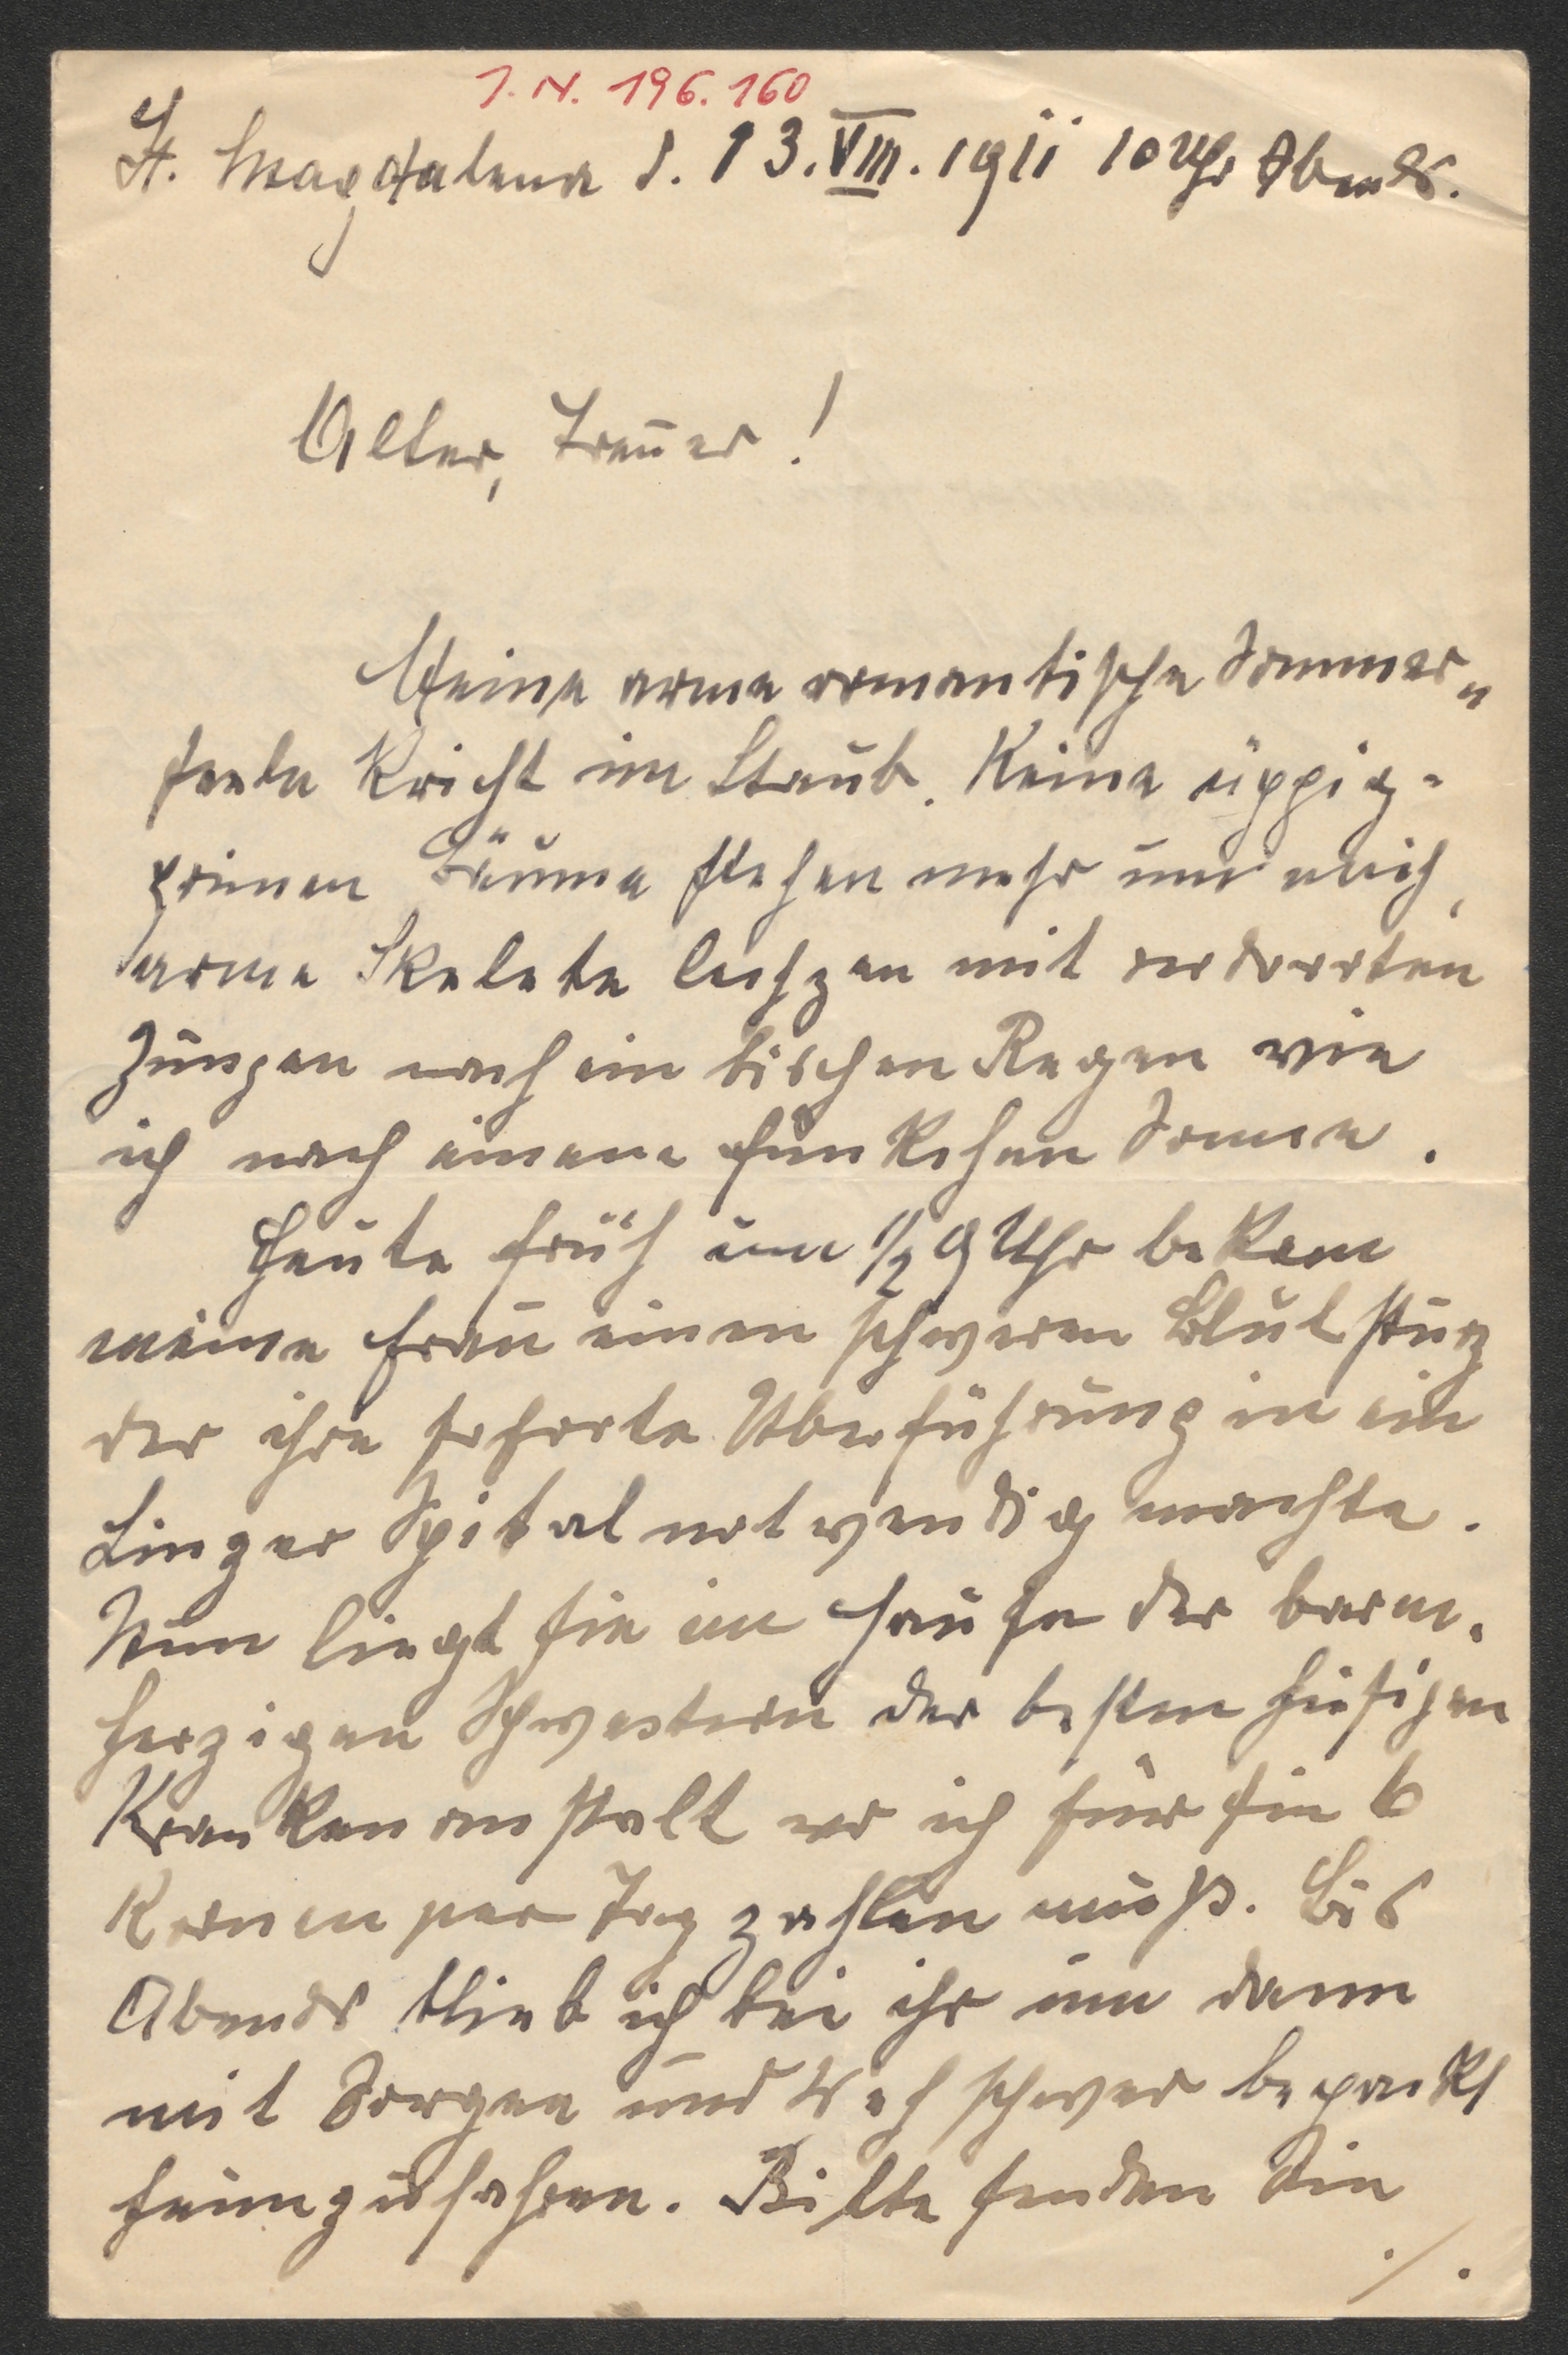 I. N. 196.160
St. Magdalena d. 13. VIII. 1911 10 Uhr Abends.
Alter, Treuer!
Meine arme romantische Sommer„
seele kricht im Staub. Keine üppig-
grünen Bäume stehen mehr um mich,
arme Skelete lechzen mit verdorrten
Zungen nach ein bischen Regen wie
ich nach einem Fünkchen Sonne.
Heute früh um 1/2 9 Uhr bekam
meine Frau einen schweren Blutsturz
der ihre soforte Überführung in ein
Linzer Spital notwendig machte.
Nun liegt sie im Hause der barm-
herzigen Schwestern der besten hiesigen
Krankenanstalt wo ich für sie 6
Kronen per Tag zahlen muß. Bis
Abends blieb ich bei ihr um dann
mit Sorgen und Weh schwer bepackt
heimzufahren. Bitte senden Sie
./.